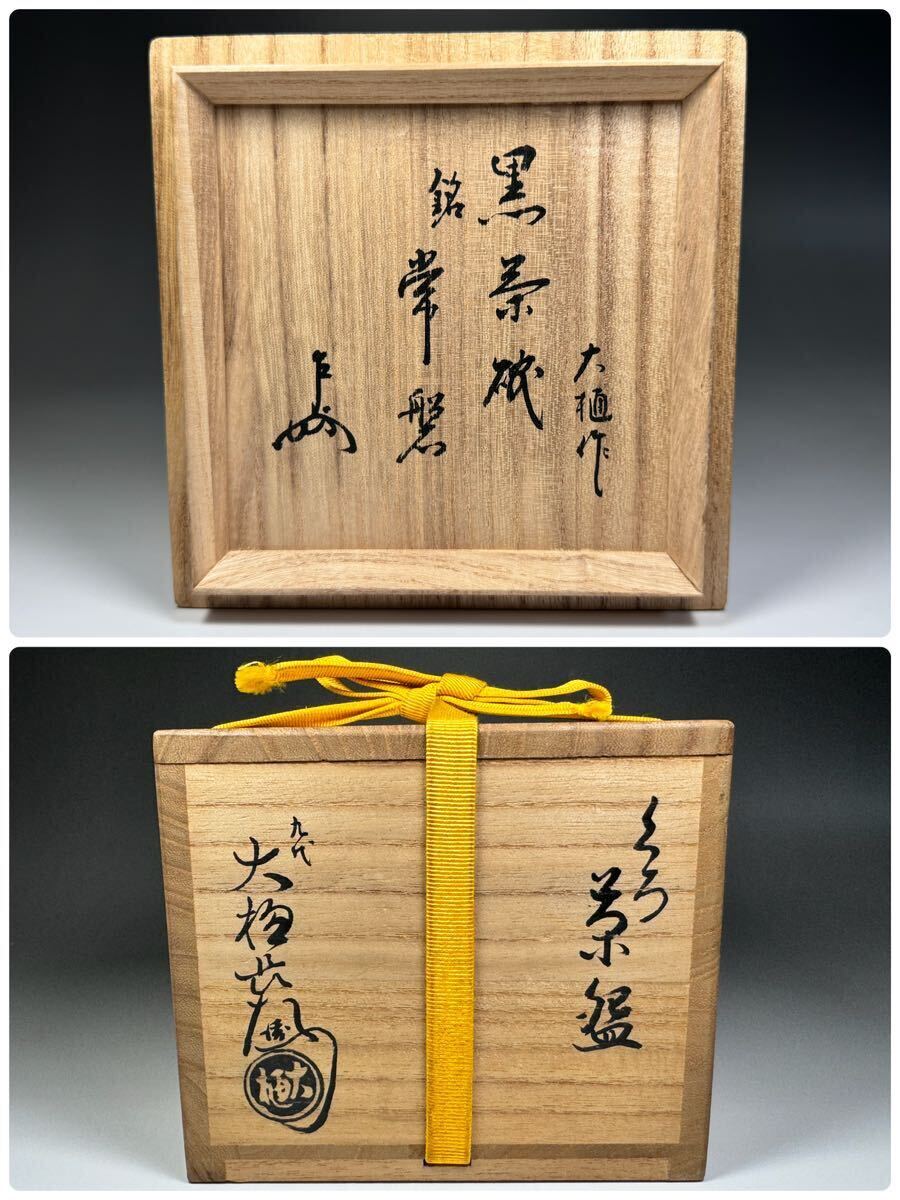 大樋作
黒茶碗
銘 常盤
くろ茶碗
九代
大樋長左衛門
大樋